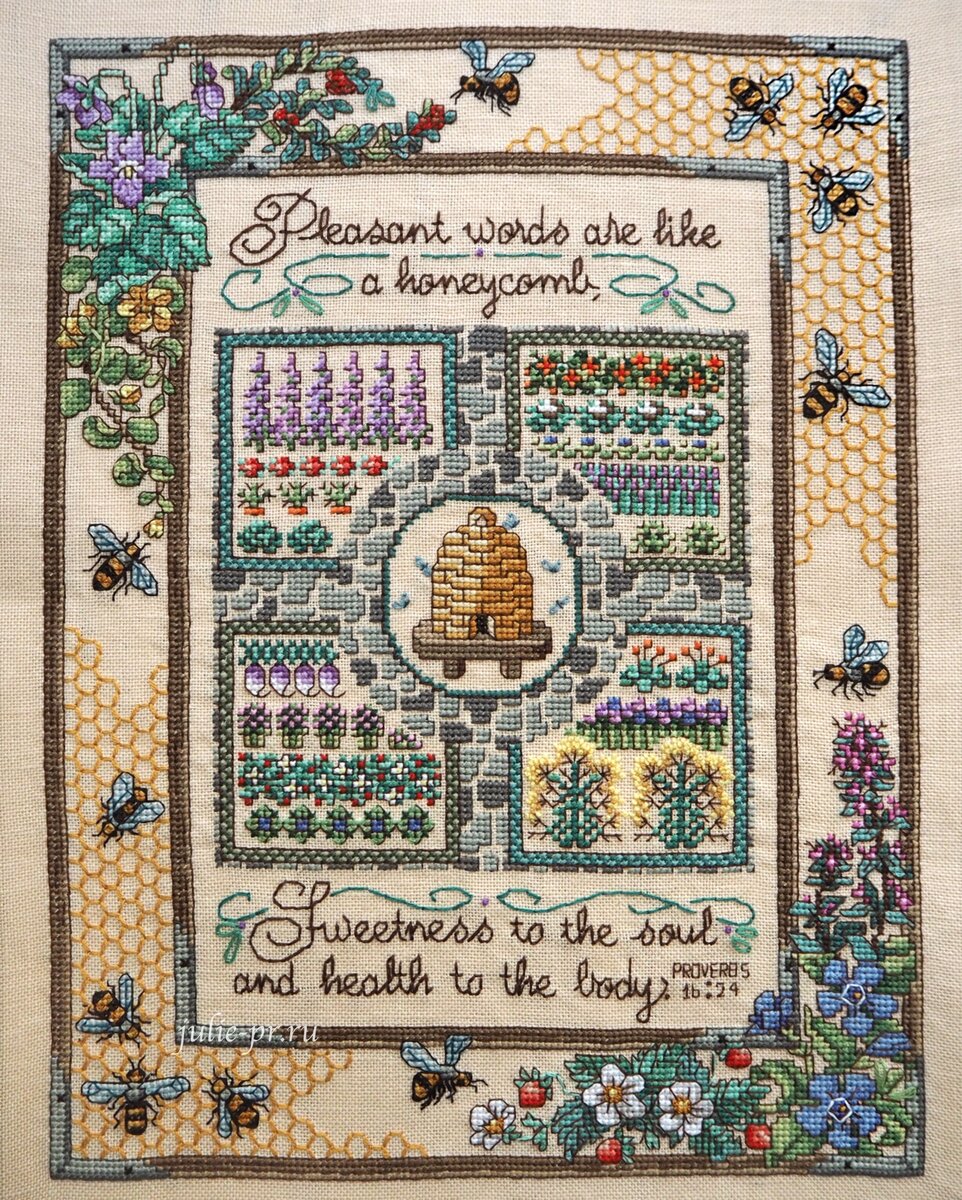 Pleasant words are like
a honeycomb,
Sweetness to the soul
and health to the body.
PROVERBS
16:24
julie-pr.ru